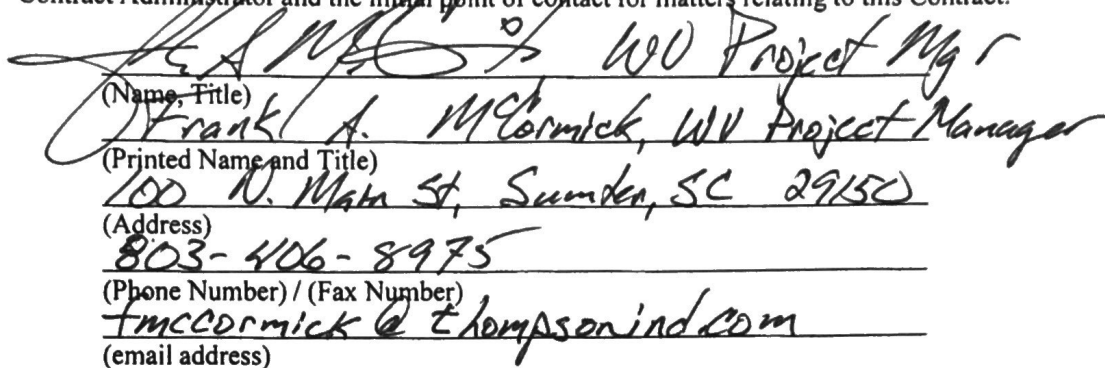 Contract Administrator and the initial point of contact for matters relating to this Contract.
WV Project Mgr
(Name, Title)
Frank A. McCormick, WV Project Manager
(Printed Name and Title)
100 N. Main St, Sumter, SC 29150
(Address)
803-406-8975
(Phone Number) / (Fax Number)
fmccormick@thompsonind.com
(email address)